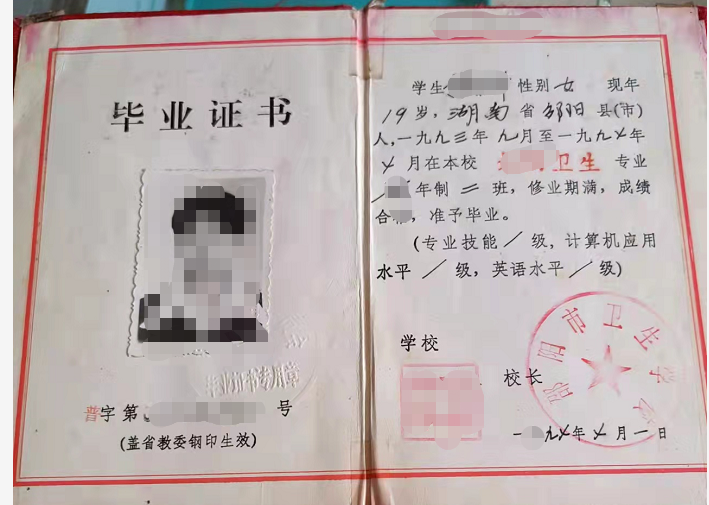 毕业证书
普字第 号
(盖省教委钢印生效)
学生 性别女 现年
19岁，湖南省邵阳县(市)
人,一九九三年九月至一九九 年
月在本校 卫生 专业
年制二班，修业期满，成绩
合 ，准予毕业。
(专业技能/级，计算机应用
水平/级，英语水平/级)
学校
校长
邵阳市卫生学校
一 九 年 月一日